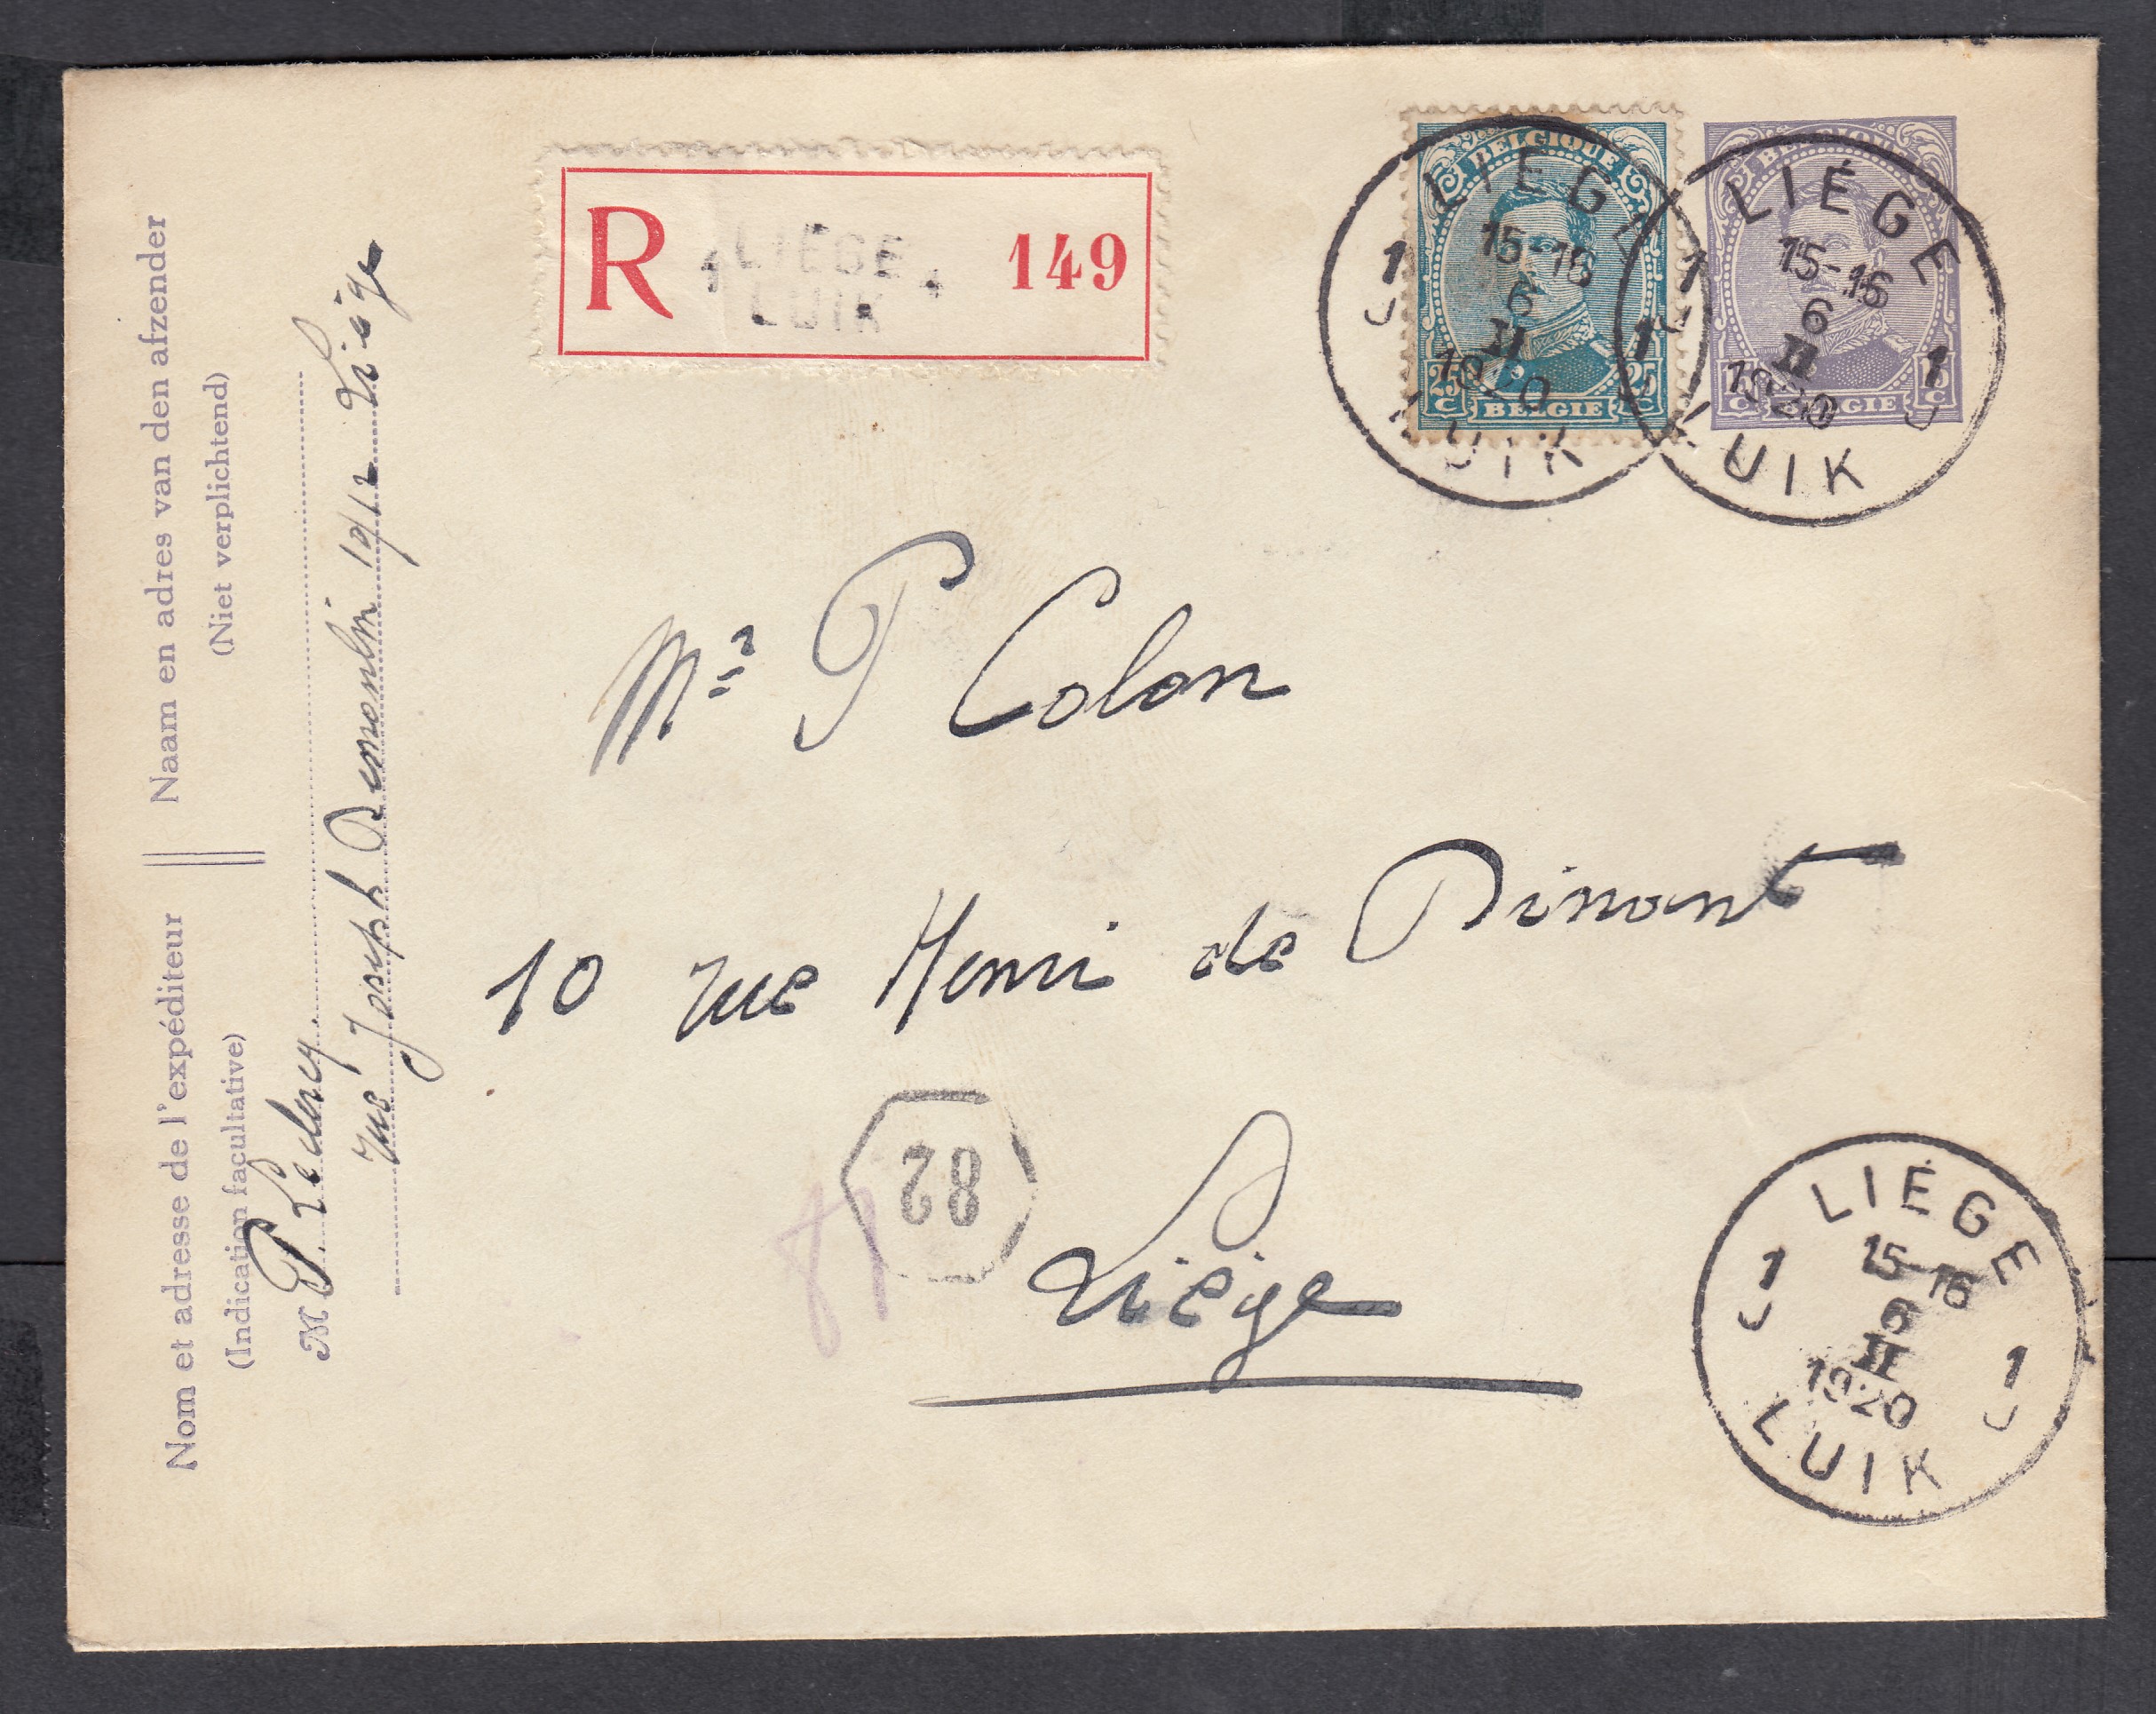 Naam en adres van den afzender
(Niet verplichtend)
Nom et adresse de l'expéditeur
(Indication facultative)
M P.
rue Joseph Demoulin 19/12 Liége
R
1 LIÉGE 1
LUIK
149
BELGIQUE
25 C BELGIE 25 C
BELGIQUE
15 C BELGIE 15 C
LIÉGE
15-16
1 6 1
II
J 1920 J
LUIK
LIÉGE
15-16
1 6 1
II
J 1920 J
LUIK
Mr P Colon
10 rue Henri de Dinant
82
Liége
LIÉGE
15-16
1 6 1
II
J 1920 J
LUIK